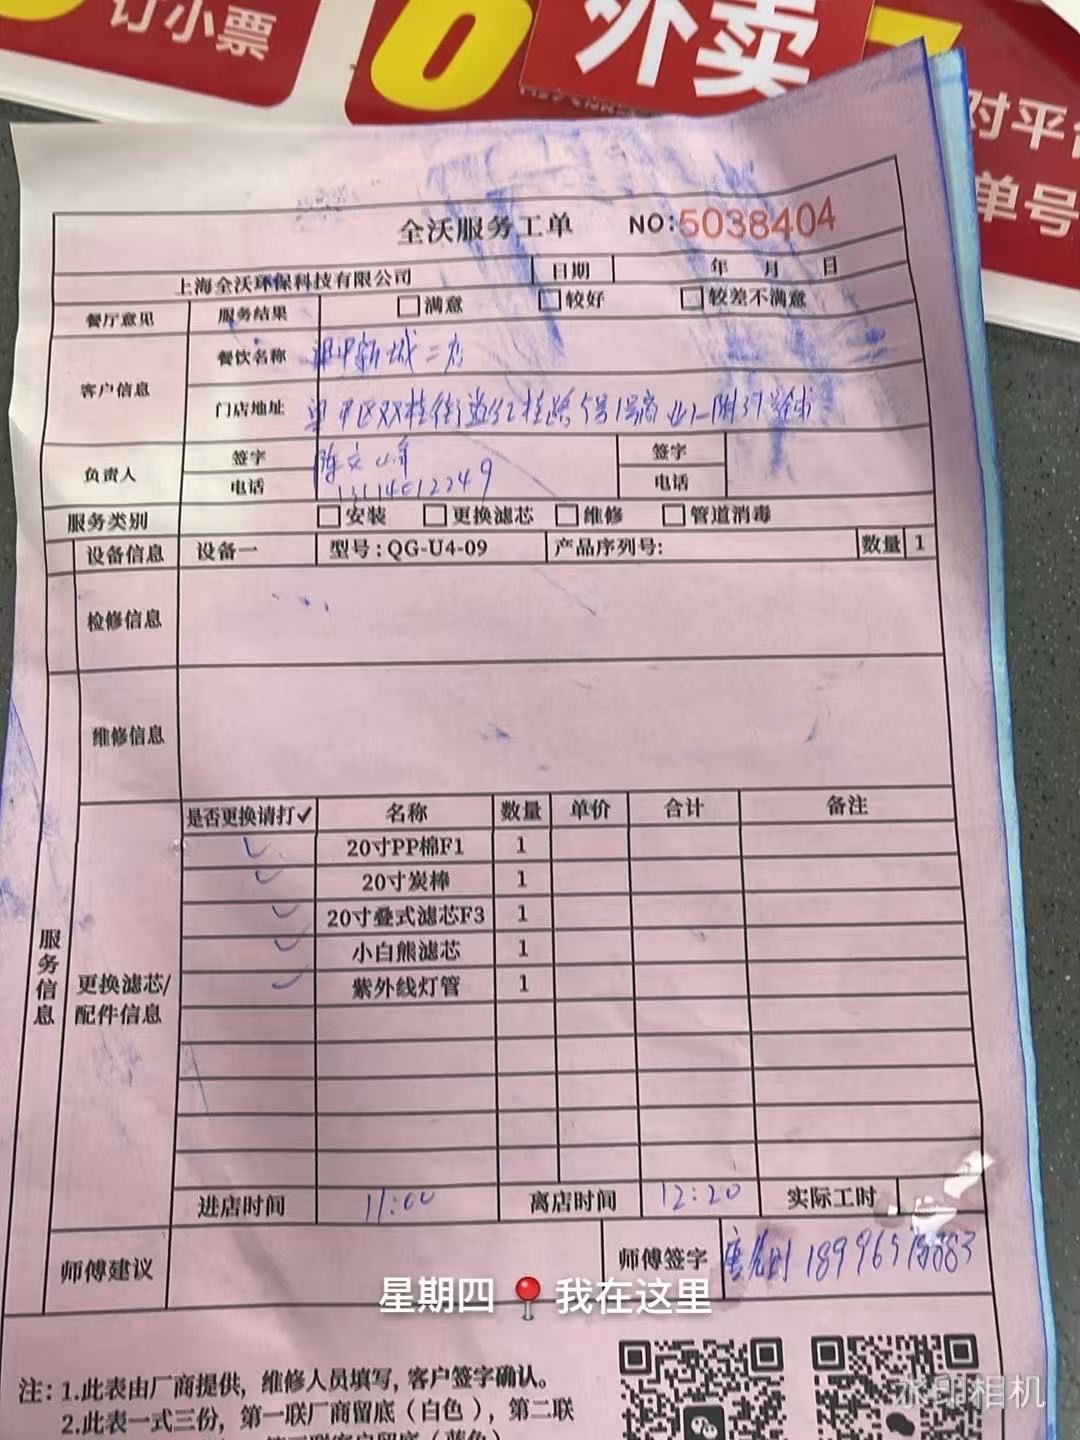 订小票
6
外卖
7
对平台
单号
全沃服务工单 NO:5038404
上海全沃环保科技有限公司 日期 年 月 日
餐厅意见 服务结果 满意 较好 较差不满意
客户信息 餐饮名称 新城二店
门店地址 区双桂街道红桂路5号1号商业1-附37
负责人 签字 陈文 签字
电话 电话
服务类别 安装 更换滤芯 维修 管道消毒
设备信息 设备一 型号:QG-U4-09 产品序列号: 数量 1
检修信息
维修信息
服务信息
更换滤芯/配件信息
是否更换请打✓ 名称 数量 单价 合计 备注
✓ 20寸PP棉F1 1
✓ 20寸炭棒 1
✓ 20寸叠式滤芯F3 1
✓ 小白熊滤芯 1
✓ 紫外线灯管 1
进店时间 11:00 离店时间 12:20 实际工时
师傅建议 师傅签字
星期四 📍 我在这里
注: 1.此表由厂商提供, 维修人员填写, 客户签字确认。
2.此表一式三份, 第一联厂商留底(白色), 第二联
水印相机